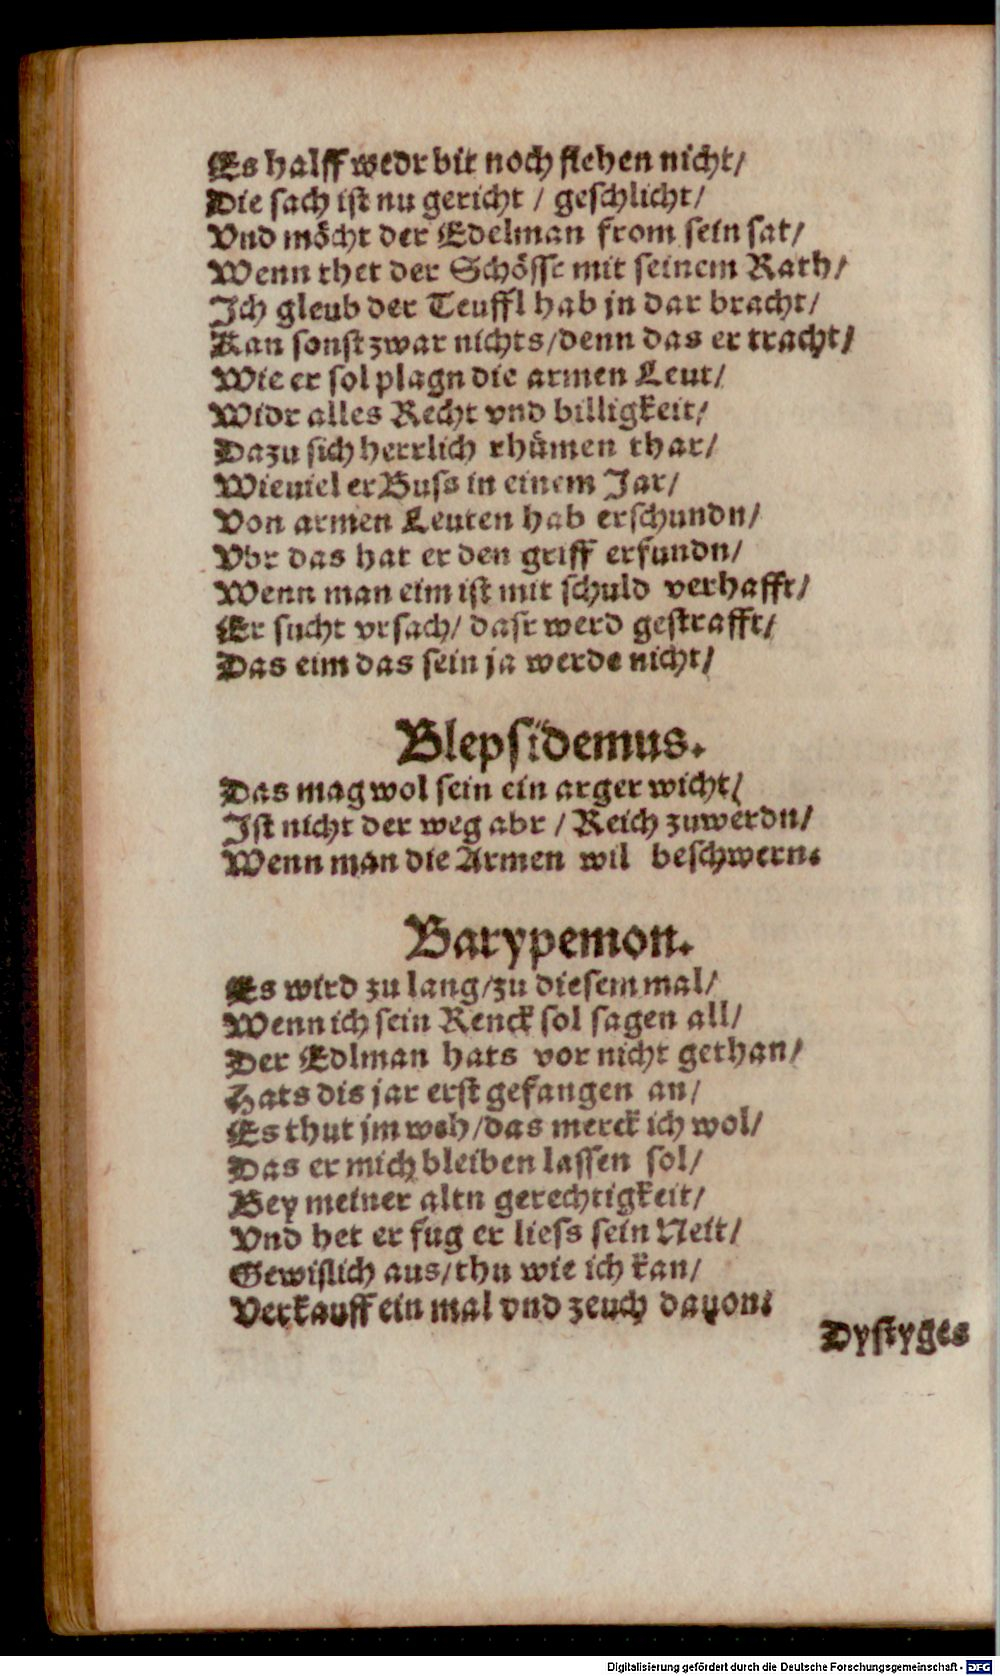 Es halff wedr bit noch flehen nicht/
Die sach ist nu gericht / geschlicht/
Vnd möcht der Edelman from sein sat/
Wenn thet der Schösse mit seinem Rath/
Ich gleub der Teuffl hab jn dar bracht/
Kan sonst zwar nichts/denn das er tracht/
Wie er sol plagn die armen Leut/
Widr alles Recht vnd billigkeit/
Dazu sich herrlich rhümen thar/
Wieuiel er Buss in einem Jar/
Von armen Leuten hab erschundn/
Vbr das hat er den griff erfundn/
Wenn man eim ist mit schuld verhafft/
Er sucht vrsach/ dasr werd gestrafft/
Das eim das sein ja werde nicht/
Blepsidemus.
Das mag wol sein ein arger wicht/
Ist nicht der weg abr / Reich zuwerdn/
Wenn man die Armen wil beschwern.
Barypemon.
Es wird zu lang/zu diesem mal/
Wenn ich sein Renck sol sagen all/
Der Edlman hats vor nicht gethan/
Hats dis jar erst gefangen an/
Es thut jm weh/das merck ich wol/
Das er mich bleiben lassen sol/
Bey meiner altn gerechtigkeit/
Vnd het er fug er liess sein Neit/
Gewislich aus/thu wie ich kan/
Verkauff ein mal vnd zeuch dauon.
Dystyges
Digitalisierung gefördert durch die Deutsche Forschungsgemeinschaft - DFG